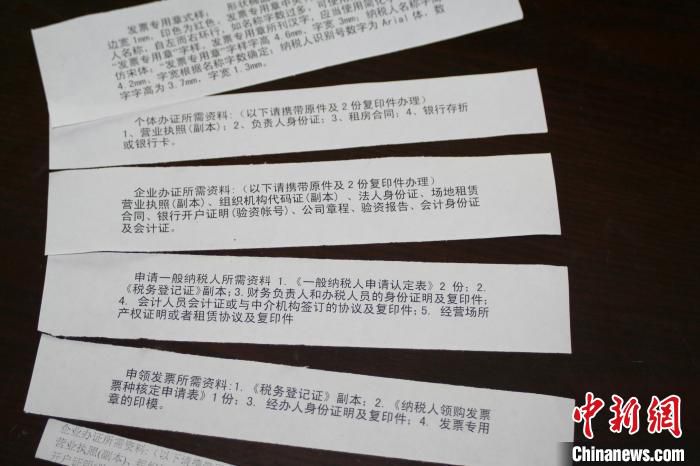 发票专用章式样: 形状椭圆
边宽1mm, 印色为红色, 发票专用章中央
人名称, 自左而右环行, 如名称字数过多, 可使用
“发票专用章”字样, 发票专用章所刊汉字, 应当使用简化字
仿宋体; “发票专用章”字样字高4.6mm, 字宽3mm; 纳税人名称字高
4.2mm, 字宽根据名称字数确定; 纳税人识别号数字为Arial体, 数
字字高为3.7mm, 字宽1.3mm。
个体办证所需资料:(以下请携带原件及2份复印件办理)
1、营业执照(副本); 2、负责人身份证; 3、租房合同; 4、银行存折
或银行卡。
企业办证所需资料:(以下请携带原件及2份复印件办理)
营业执照(副本)、组织机构代码证(副本) 、法人身份证、场地租赁
合同、银行开户证明(验资帐号)、公司章程、验资报告、会计身份证
及会计证。
申请一般纳税人所需资料 1.《一般纳税人申请认定表》2 份; 2.
《税务登记证》副本; 3.财务负责人和办税人员的身份证明及复印件;
4. 会计人员会计证或与中介机构签订的协议及复印件; 5. 经营场所
产权证明或者租赁协议及复印件
申领发票所需资料: 1.《税务登记证》副本; 2.《纳税人领购发票
票种核定申请表》1份; 3. 经办人身份证明及复印件; 4. 发票专用
章的印模。
企业办证所需资料:(以下请携
营业执照(副本)、
开户证明
中新网
Chinanews.com